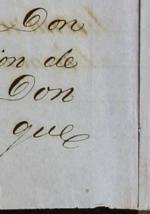 Don
ion de
Don
que